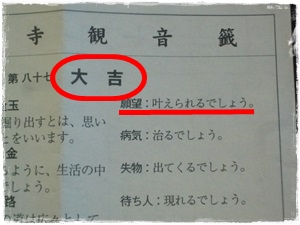 寺観音籤
第八十七 大吉
願望：叶えられるでしょう。
病気：治るでしょう。
失物：出てくるでしょう。
待ち人：現れるでしょう。
玉
掘り出すとは、思い
といいます。
金
るように、生活の中